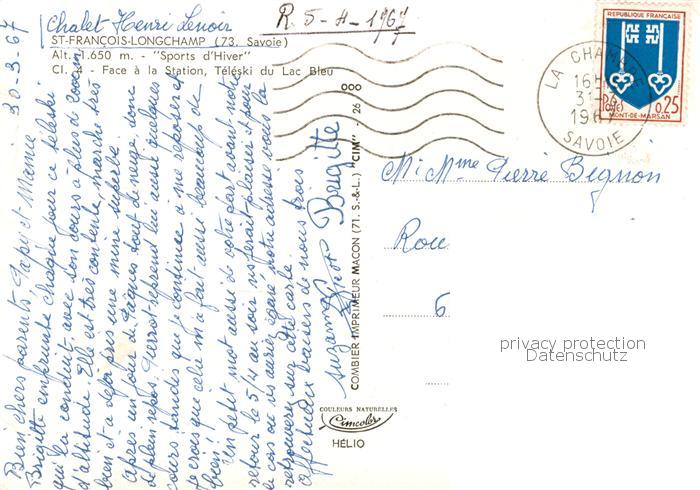 30-3-67
Chalet Henri Lenoir
R. 5-4-1967
ST-FRANÇOIS-LONGCHAMP (73. Savoie)
Alt. 1.650 m. - "Sports d'Hiver"
Cl. - Face à la Station, Téléski du Lac Bleu
Bien chers parents, Papi et Mamie
Brigitte emprunte chaque jour ce téléski
qui la conduit avec son cours à plus de
d'altitude. Elle est très contente, marche très
bien et a déjà pris une mine superbe.
Après un jour de Pâques tout de neige, donc
de plein repos, Pierrot reprend lui aussi quelques
cours tandis que je continue à me reposer et
je crois que cela m'a fait aussi beaucoup de
bien!
Un petit mot aussi de votre part avant notre
retour le 5/4 au soir ns ferait plaisir et pour
le cas où vs auriez égaré notre adresse vous la
retrouverez sur cette carte.
Affectueux baisers de nous trois
Suzanne Pierrot Brigitte
COMBIER IMPRIMEUR MACON (71. S.-&-L.) "CIM"
26
COULEURS NATURELLES
Cimcolor
HÉLIO
REPUBLIQUE FRANÇAISE
Postes
0,25
MONT-DE-MARSAN
LA CHAMBRE
16H
31-3
1967
SAVOIE
M. Mme Pierre Bignon
Rou
6
privacy protection
Datenschutz